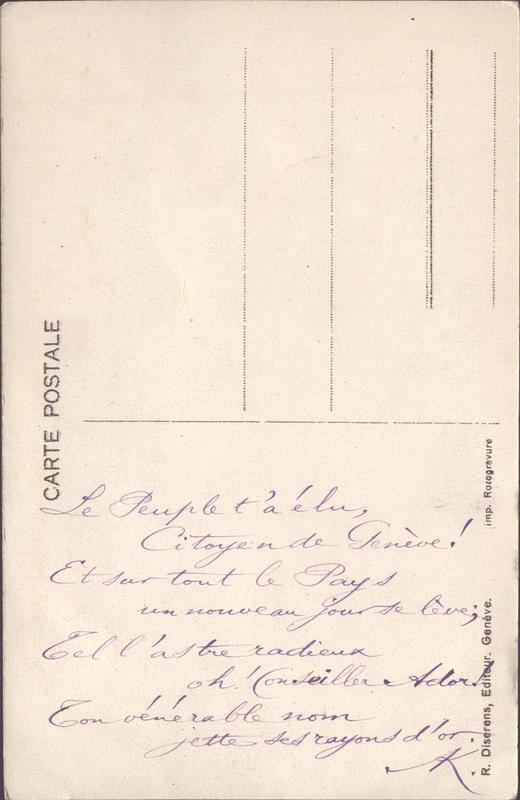 CARTE POSTALE
Le Peuple t'a élu,
Citoyen de Genève!
Et sur tout le Pays
un nouveau jour se lève;
Tel l'astre radieux
oh! Conseiller Ador!
Ton vénérable nom
jette ses rayons d'or.
K.
imp. Rotogravure
R. Diserens, Editeur. Genève.